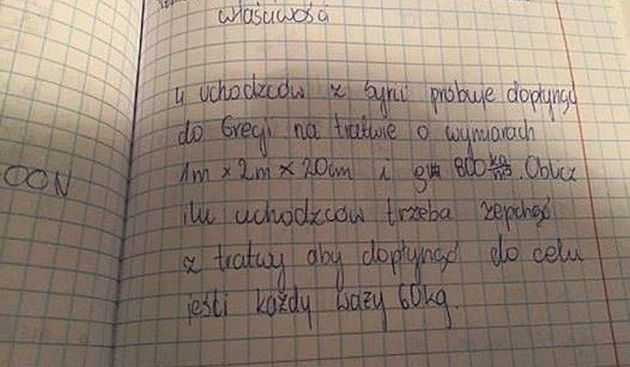 właściwości
4 uchodźców z Syrii próbuje dopłynąć
do Grecji na tratwie o wymiarach
OON
1m x 2m x 20cm i g 800 kg/m³. Oblicz
ilu uchodźców trzeba zepchąć
z tratwy aby dopłynąć do celu
jeśli każdy waży 60kg.